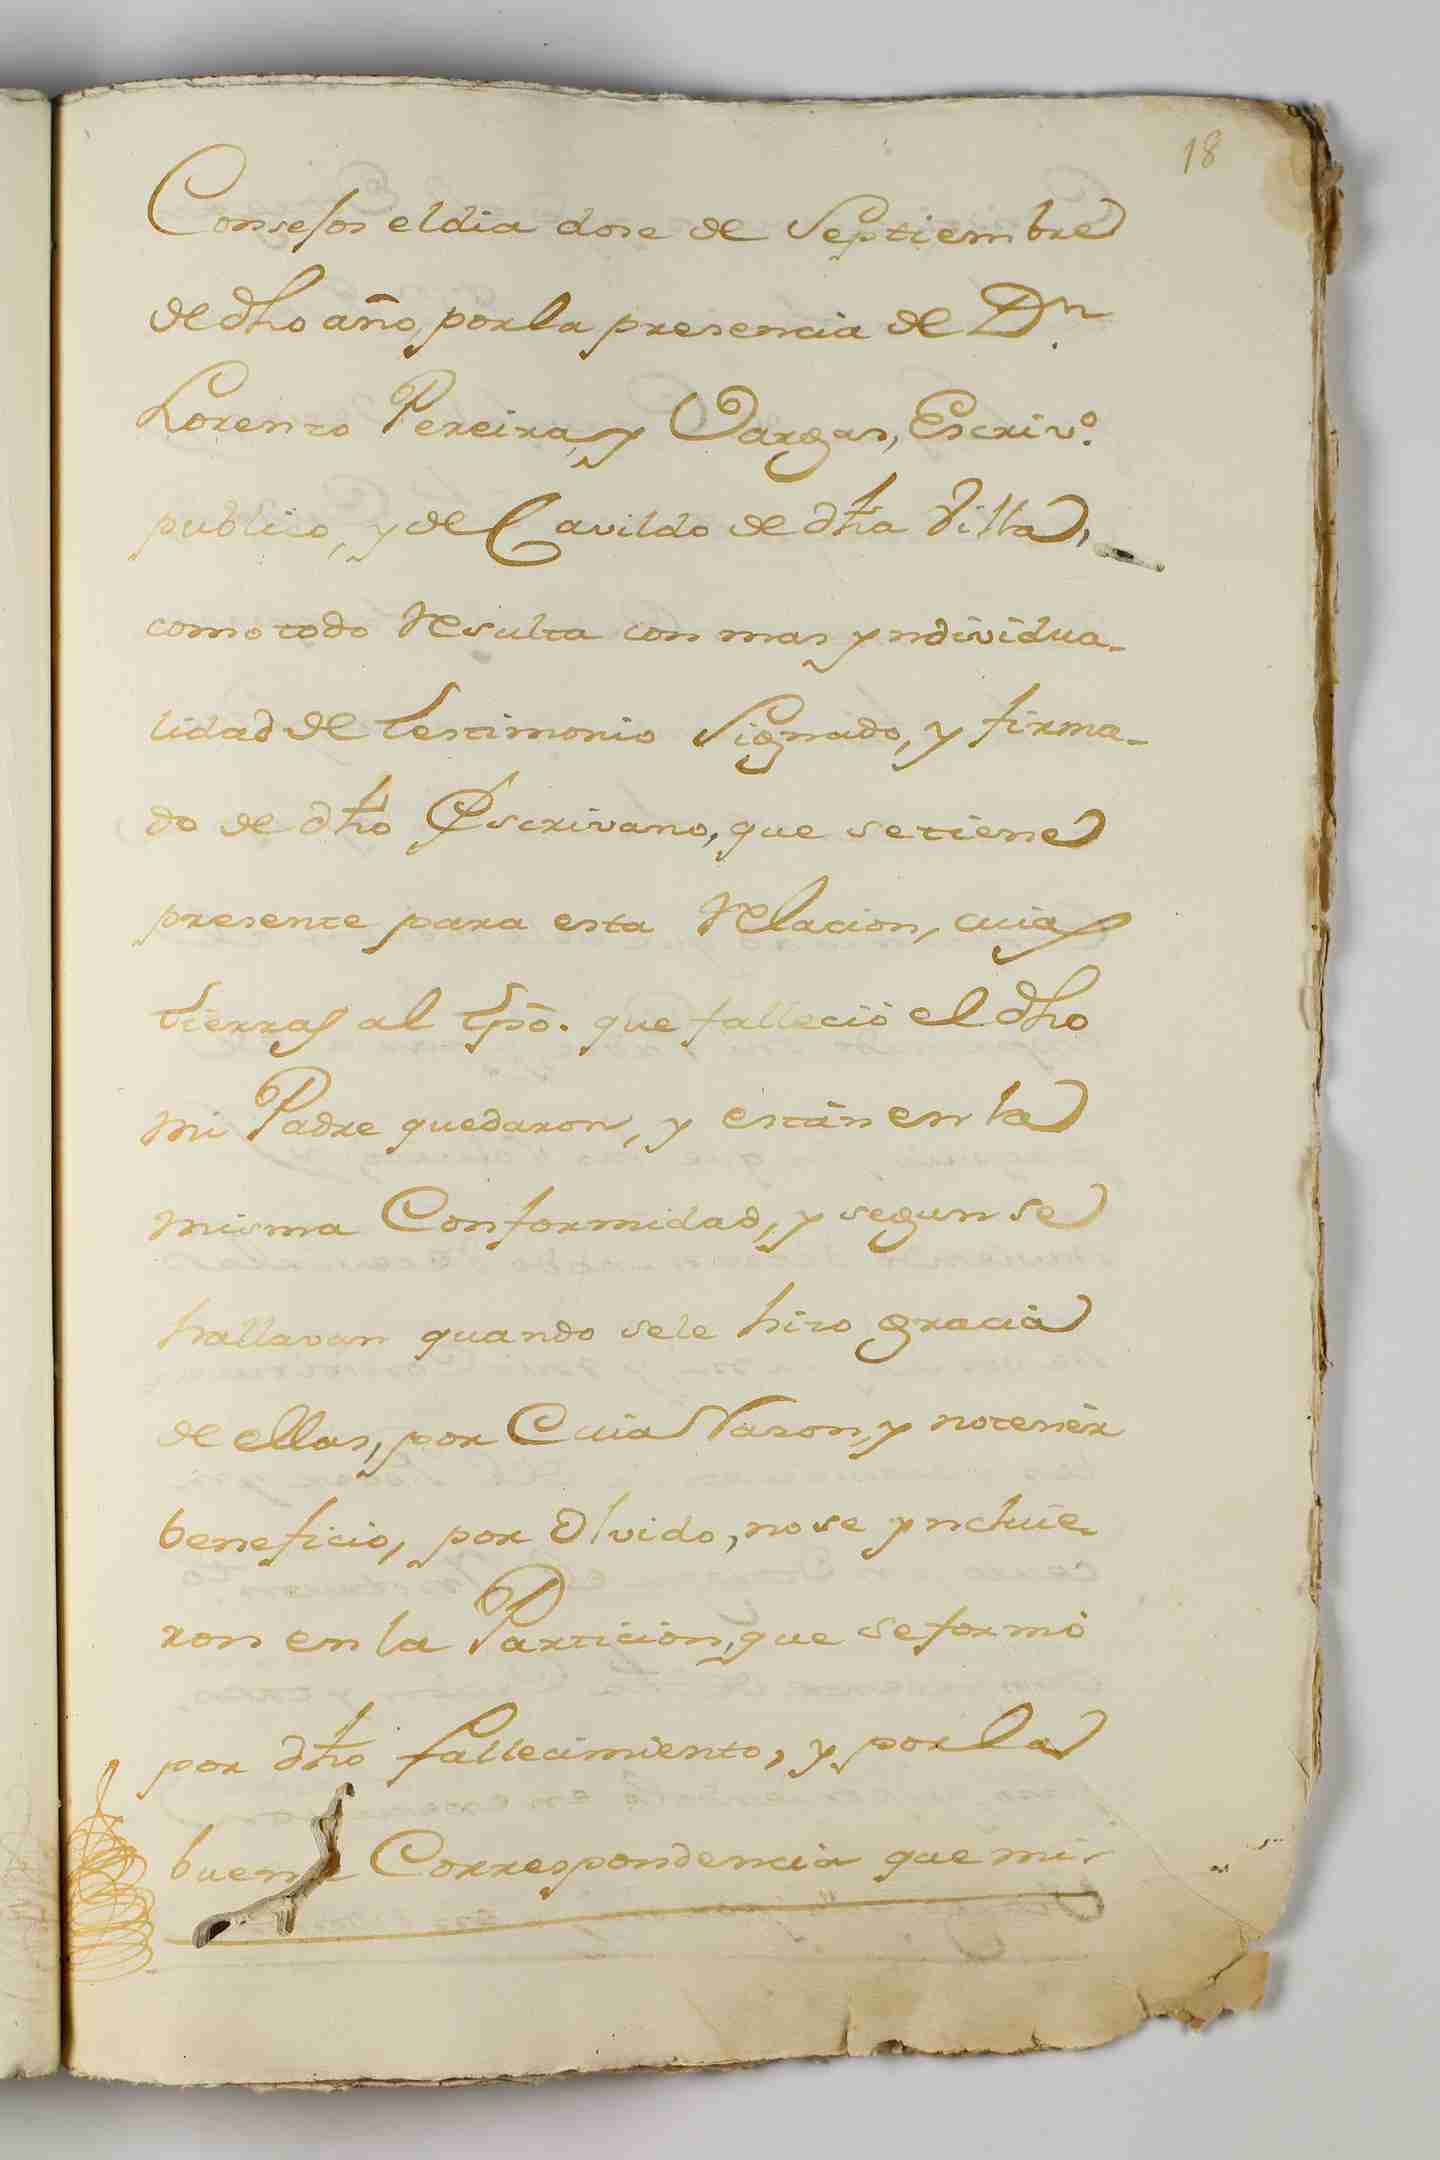 18
Consejos el dia dose de Septiembre
de dho año, por la presencia de Dn.
Lorenzo Pereira, y Vargas, Escrivo.
publico, y de Cavildo de dha Villa,
como todo Resulta con mas yndividua-
lidad de testimonio Signado, y firma-
do de dho Escrivano, que se tiene
presente para esta Relacion, cuias
tierras al tpõ. que falleciò el dho
mi Padre quedaron, y estàn en la
misma Conformidad, y segun se
hallavan quando se le hizo gracia
de ellas, por Cuia Razon, y no tenèr
beneficio, por Olvido, no se ynclùie-
ron en la Particion, que se formò
por dho fallecimiento, y por la
buena Correspondencia que mis